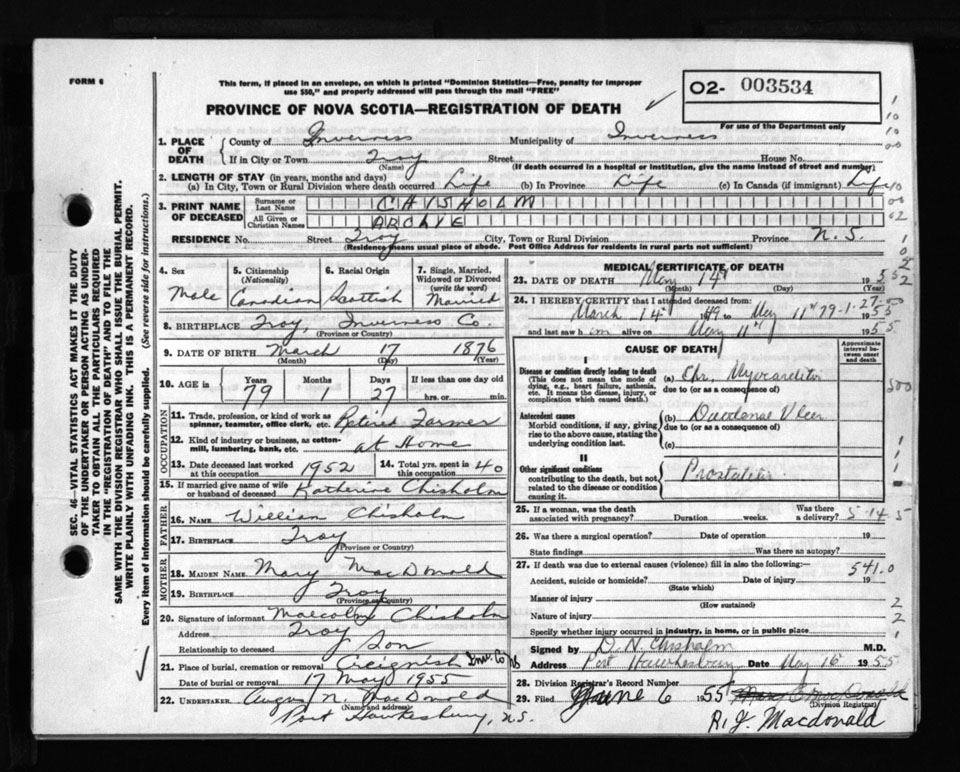 FORM 6
This form, if placed in an envelope, on which is printed "Dominion Statistics—Free, penalty for improper
use $50," and properly addressed will pass through the mail "FREE"
PROVINCE OF NOVA SCOTIA—REGISTRATION OF DEATH
O2- 003534
For use of the Department only
1. PLACE OF DEATH
County of Inverness Municipality of Inverness
If in City or Town Troy Street House No.
(Name) (If death occurred in a hospital or institution, give the name instead of street and number)
2. LENGTH OF STAY (in years, months and days)
(a) In City, Town or Rural Division where death occurred Life (b) In Province Life (c) In Canada (if immigrant) Life
3. PRINT NAME OF DECEASED
Surname or Last Name CHISHOLM
All Given or Christian Names ARCHIE
RESIDENCE No. Street Troy City, Town or Rural Division Province N. S.
(Residence means usual place of abode. Post Office Address for residents in rural parts not sufficient)
4. Sex Male
5. Citizenship (Nationality) Canadian
6. Racial Origin Scottish
7. Single, Married, Widowed or Divorced (write the word) Married
8. BIRTHPLACE Troy, Inverness Co.
(Province or Country)
9. DATE OF BIRTH March 17 1876
(Month) (Day) (Year)
10. AGE in Years 79 Months 1 Days 27 If less than one day old hrs. or min.
OCCUPATION
11. Trade, profession, or kind of work as spinner, teamster, office clerk, etc. Retired Farmer
12. Kind of industry or business, as cotton-mill, lumbering, bank, etc. at Home
13. Date deceased last worked at this occupation 1952
14. Total yrs. spent in this occupation 40
15. If married give name of wife or husband of deceased Katherine Chisholm
FATHER
16. NAME William Chisholm
17. BIRTHPLACE Troy
(Province or Country)
MOTHER
18. MAIDEN NAME Mary MacDonald
19. BIRTHPLACE Troy
(Province or Country)
20. Signature of informant Malcolm Chisholm
Address Troy
Relationship to deceased Son
21. Place of burial, cremation or removal Creignish Inv. Co NS
Date of burial or removal 17 May 1955
22. UNDERTAKER Angus N. MacDonald
(Name and address)
Port Hawkesbury, N.S.
MEDICAL CERTIFICATE OF DEATH
23. DATE OF DEATH May 14 1955
(Month) (Day) (Year)
24. I HEREBY CERTIFY that I attended deceased from:
March 14 1949 to May 11 79-1-27 1955
and last saw him alive on May 11 1955
CAUSE OF DEATH
Approximate interval between onset and death
I
Disease or condition directly leading to death
(This does not mean the mode of dying, e.g., heart failure, asthenia, etc. It means the disease, injury, or complication which caused death.)
(a) Chr. Myocarditis
due to (or as a consequence of)
Antecedent causes
Morbid conditions, if any, giving rise to the above cause, stating the underlying condition last.
(b) Duodenal Ulcer
due to (or as a consequence of)
(c)
II
Other significant conditions
contributing to the death, but not related to the disease or condition causing it.
Prostatitis
25. If a woman, was the death associated with pregnancy? Duration weeks. Was there a delivery? 5-14-5
26. Was there a surgical operation? Date of operation 19
State findings Was there an autopsy?
27. If death was due to external causes (violence) fill in also the following:— 541.0
Accident, suicide or homicide? Date of injury 19
(State which)
Manner of injury
(How sustained)
Nature of injury
Specify whether injury occurred in industry, in home, or in public place
Signed by D. N. Chisholm M.D.
Address Port Hawkesbury Date May 16 1955
28. Division Registrar's Record Number
29. Filed June 6 1955 Mary C MacDonald
(Division Registrar)
R. J. Macdonald
SEC. 46—VITAL STATISTICS ACT MAKES IT THE DUTY
OF THE UNDERTAKER OR PERSON ACTING AS UNDER-
TAKER TO OBTAIN ALL THE PARTICULARS REQUIRED
IN THE "REGISTRATION OF DEATH" AND TO FILE THE
SAME WITH THE DIVISION REGISTRAR WHO SHALL ISSUE THE BURIAL PERMIT.
WRITE PLAINLY WITH UNFADING INK. THIS IS A PERMANENT RECORD.
Every item of information should be carefully supplied. (See reverse side for instructions.)